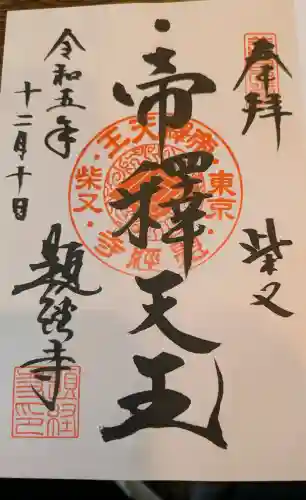 奉拝
柴又
帝釋天王
令和五年
十二月十日
題経寺
帝釋天王
東京
柴又
題経寺